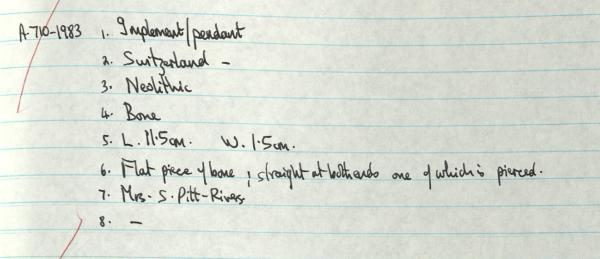 A-710-1983 1. Implement/pendant
2. Switzerland -
3. Neolithic
4. Bone
5. L. 11.5cm. W. 1.5cm.
6. Flat piece of bone ; straight at both ends one of which is pierced.
7. Mrs. S. Pitt-Rivers
8. -